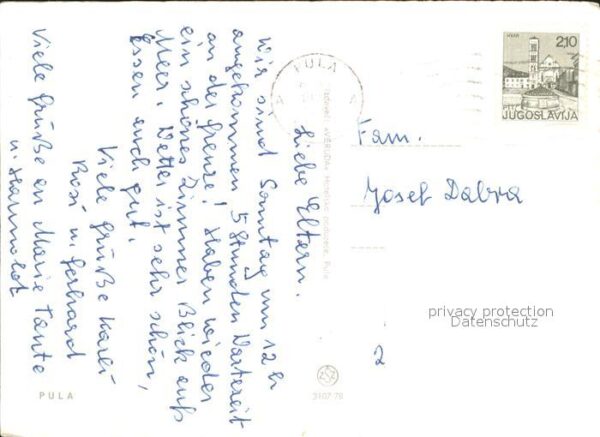 Liebe Eltern.
Wir sind Sonntag um 12 h
angekommen, 5 Stunden Wartezeit
an der Grenze! Haben wieder
ein schönes Zimmer Blick aufs
Meer. Wetter ist sehr schön,
Essen auch gut.
Viele Grüße
Rosi u. Gerhard
Viele Grüße an Marie Tante
u.
Fam.
Josef Dabra
2
PULA
HVAR
2,10
PTT
JUGOSLAVIJA
Izdavač: »VERUDA« Hotelsko poduzeće, Pula
3107-78
PULA
privacy protection
Datenschutz